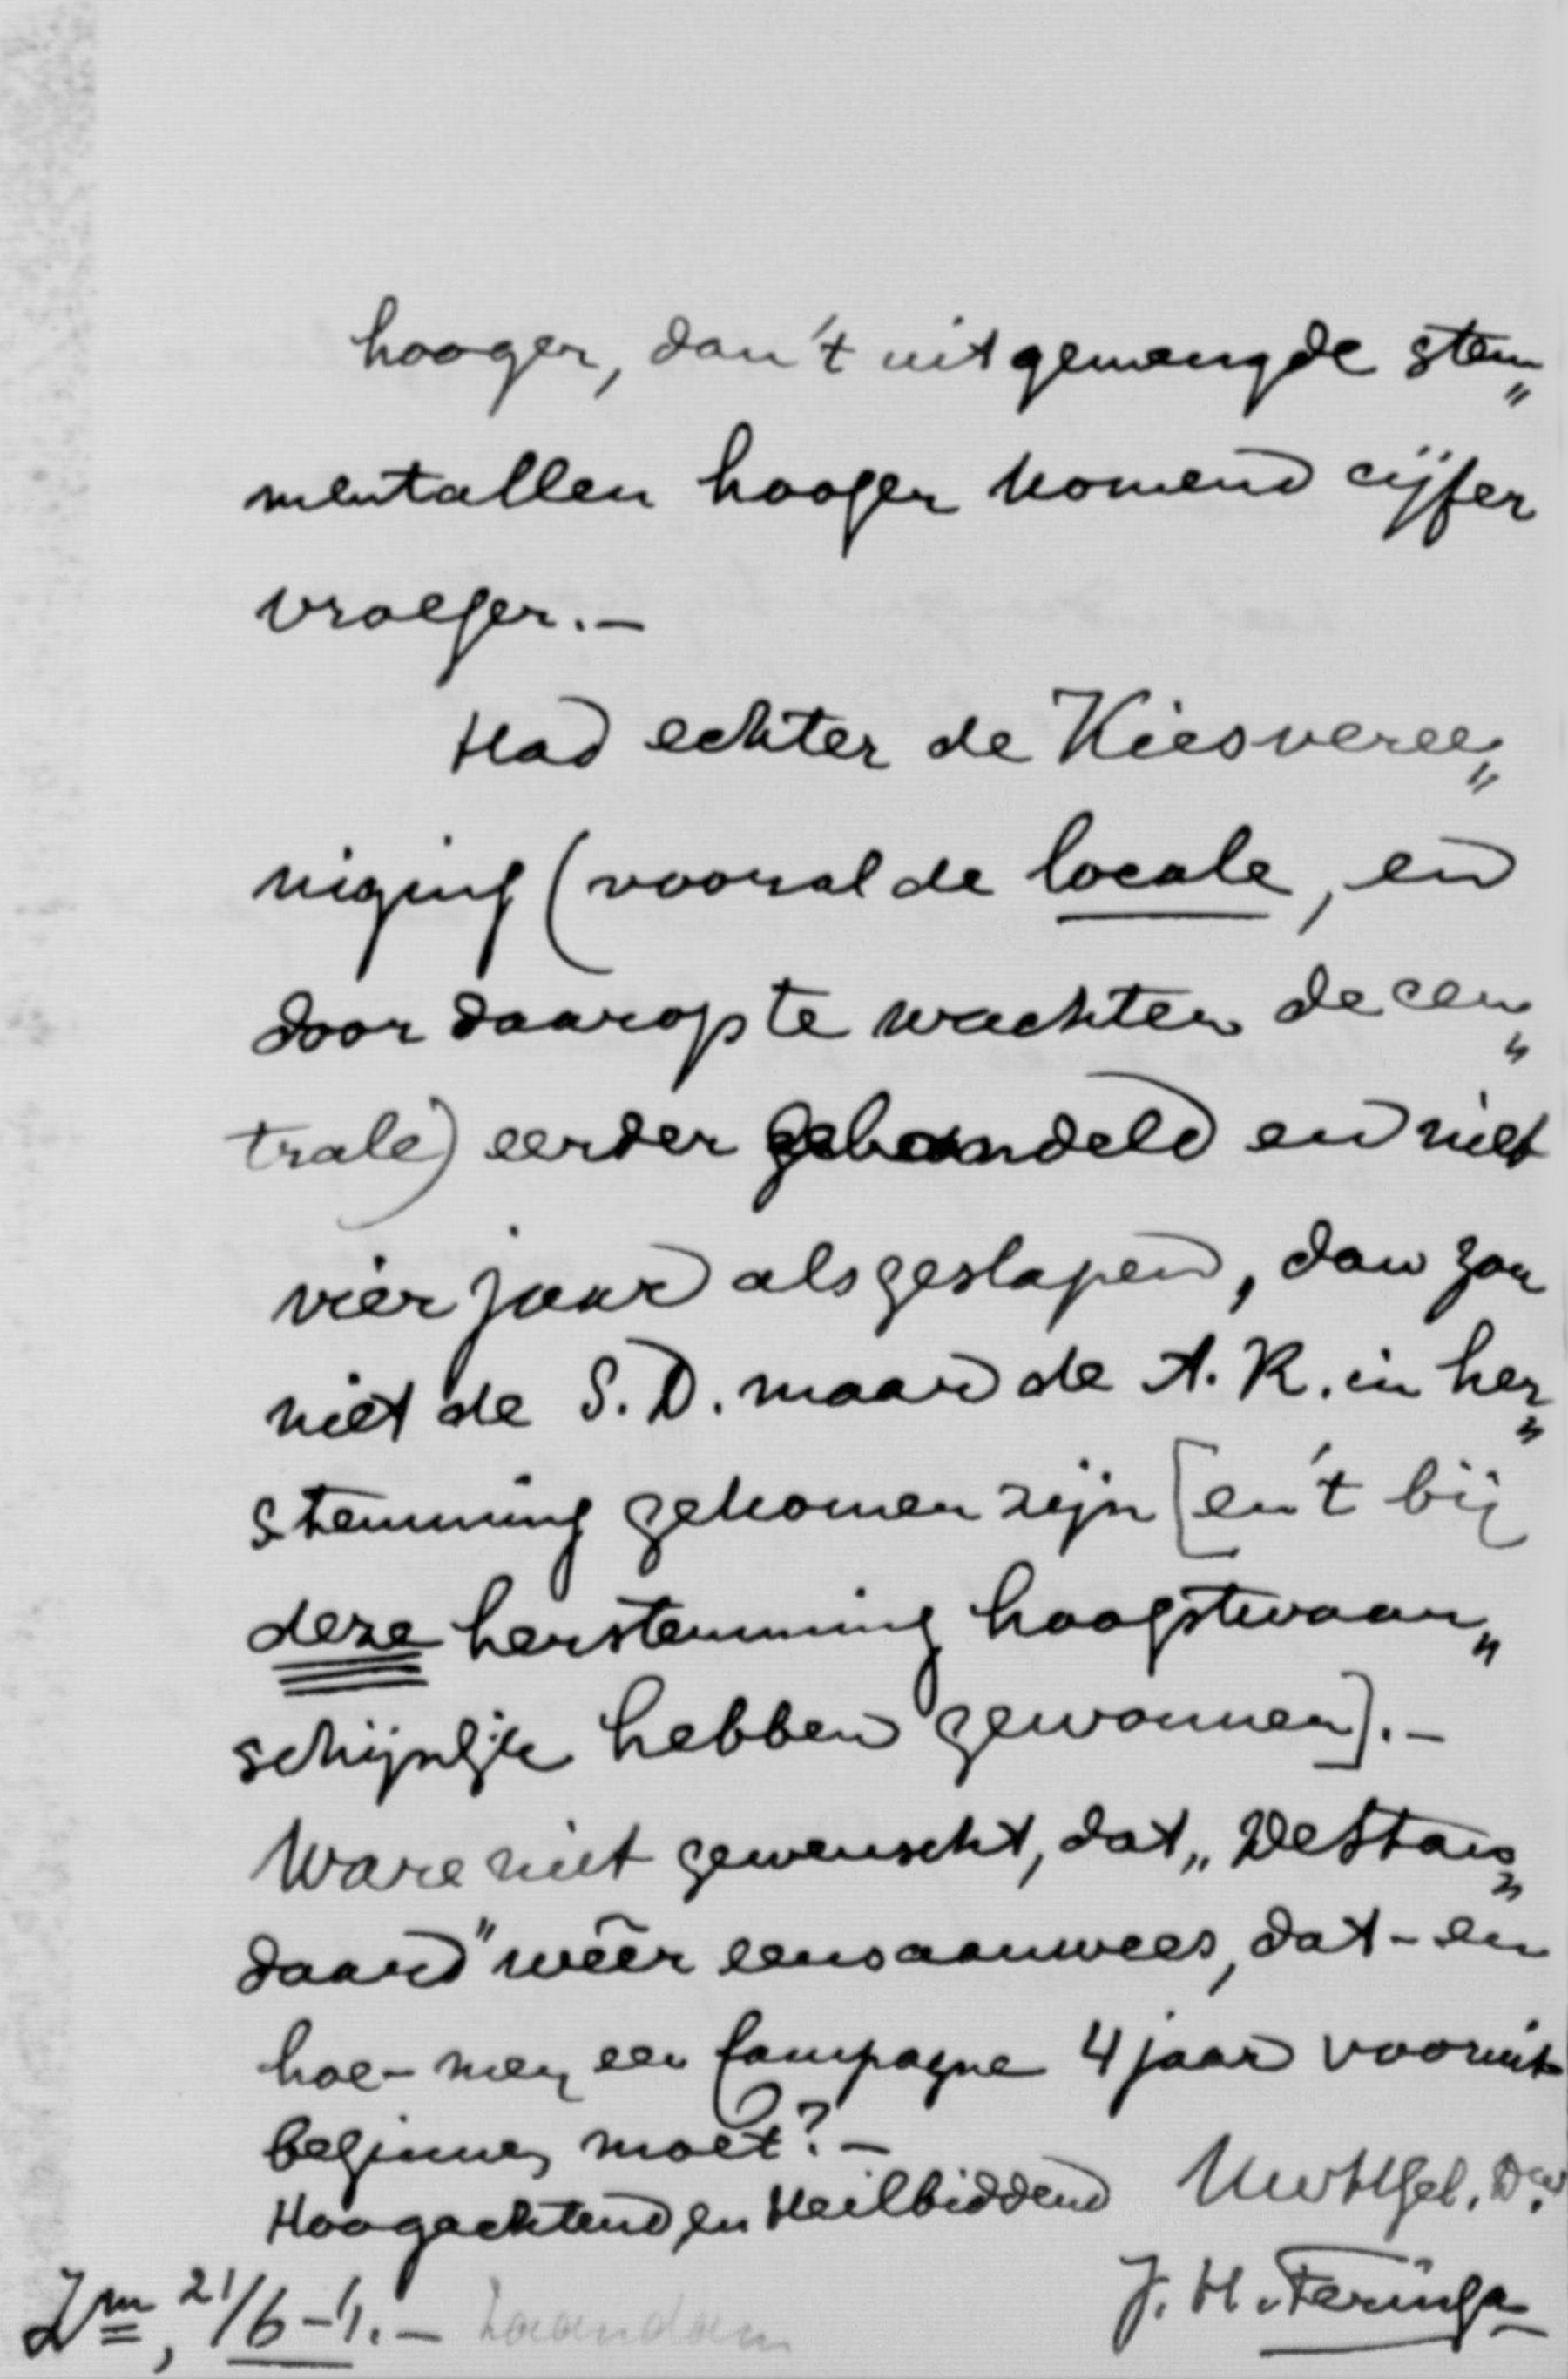 hooger, dan 't uit gemengde stem„
mentallen hooger komend cijfer
vroeger.—
Had echter de Kiesveree„
niging (vooral de locale, en
door daarop te wachten de cen„
trale) eerder gehandeld en niet
vier jaar als geslapen, dan zou
niet de S.D. maar de A.R. in her„
stemming gekomen zijn [en 't bij
deze herstemming hoogstwaar„
schijnlijk hebben gewonnen].—
Ware niet gewenscht, dat „De Stan„
daard" wêer eens aanwees, dat - en
hoe - men een Campagne 4 jaar vooruit
beginnen moet?—
Hoogachtend en Heilbiddend Uw HGel. Dr.
J. H. Feringa
Zm, 21/6 -1.— Zaandam